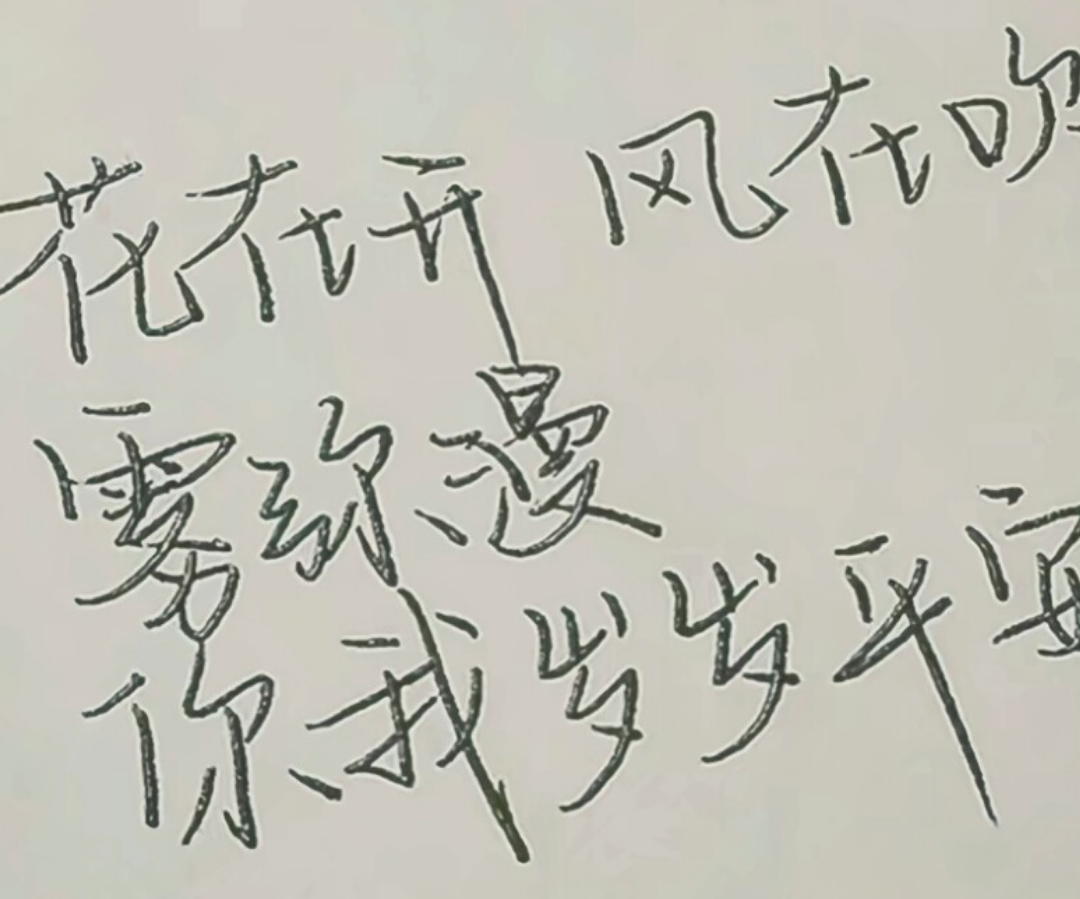 花在开 风在吹
雾弥漫
你我岁岁平安